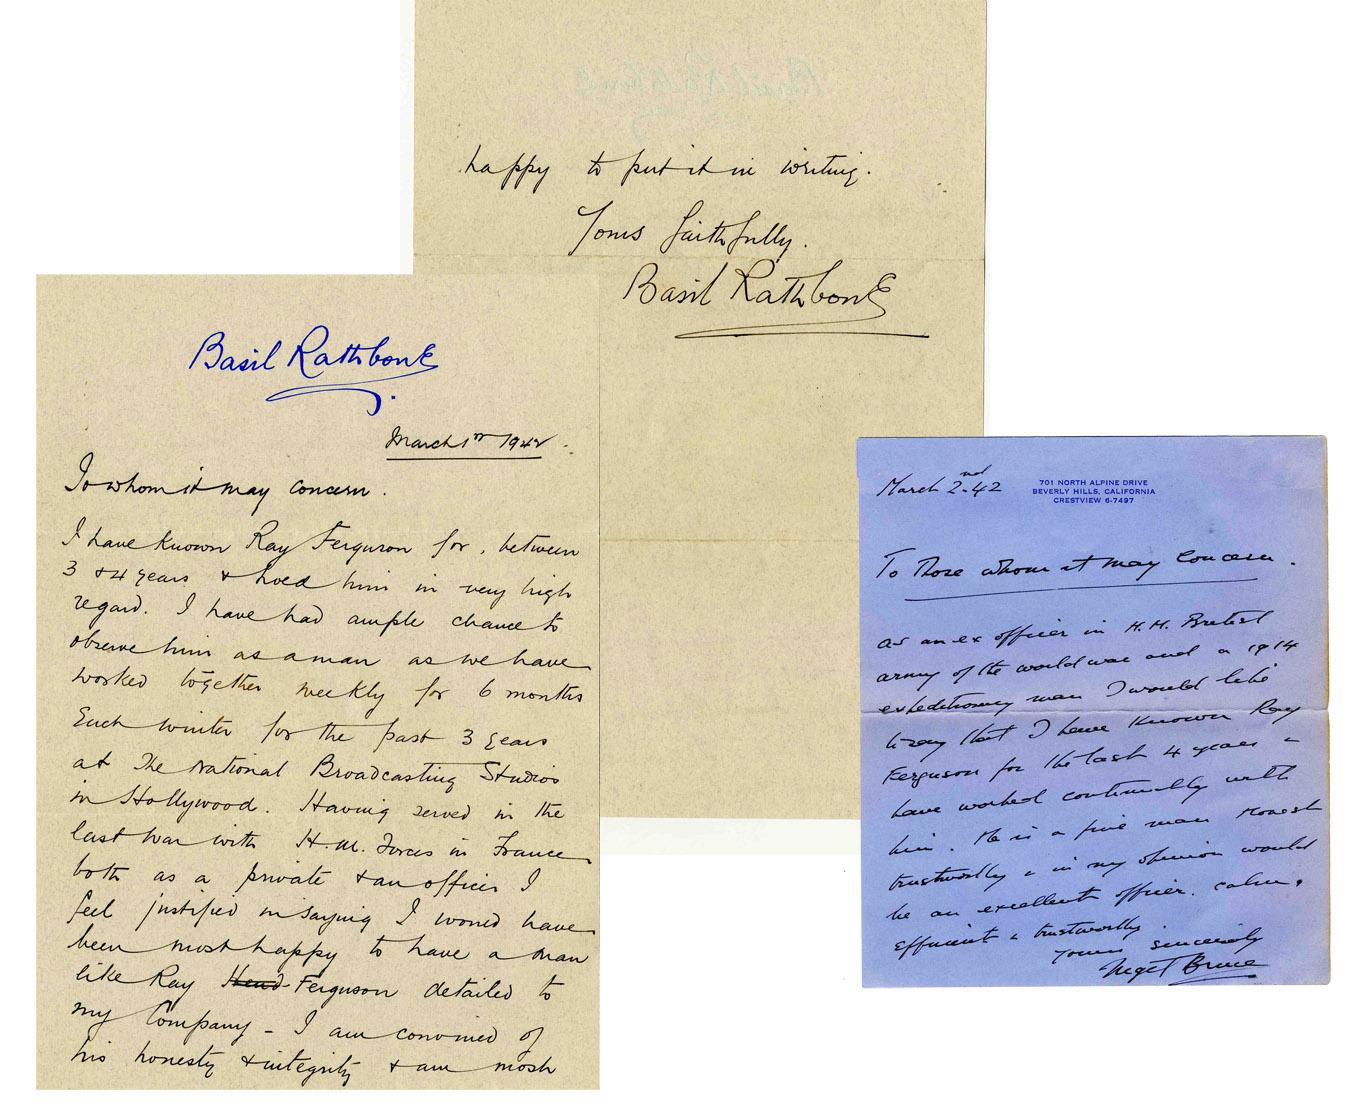 Basil RathbonE
March 1st 1942.
To whom it may concern.
I have known Ray Ferguson for, between
3 & 4 years & hold him in very high
regard. I have had ample chance to
observe him as a man as we have
worked together weekly for 6 months
Each winter for the past 3 years
at The National Broadcasting Studios
in Hollywood. Having served in the
last war with H.M. Forces in France
both as a private & an officer I
feel justified in saying I would have
been most happy to have a man
like Ray Ferguson detailed to
my Company - I am convinced of
his honesty & integrity & am most
happy to put it in writing.
Yours faithfully.
Basil RathbonE
March 2nd. 42
701 NORTH ALPINE DRIVE
BEVERLY HILLS, CALIFORNIA
CRESTVIEW 6-7497
To Those whom it may Concern.
as an ex officer in H.M. British
army of the world war and a 1914
expeditionary man I would like
to say that I have known Ray
Ferguson for the last 4 years &
have worked continually with
him. He is a fine man Honest
trustworthy & in my opinion would
be an excellent officer. calm,
efficient & trustworthy
yours sincerely
Nigel Bruce